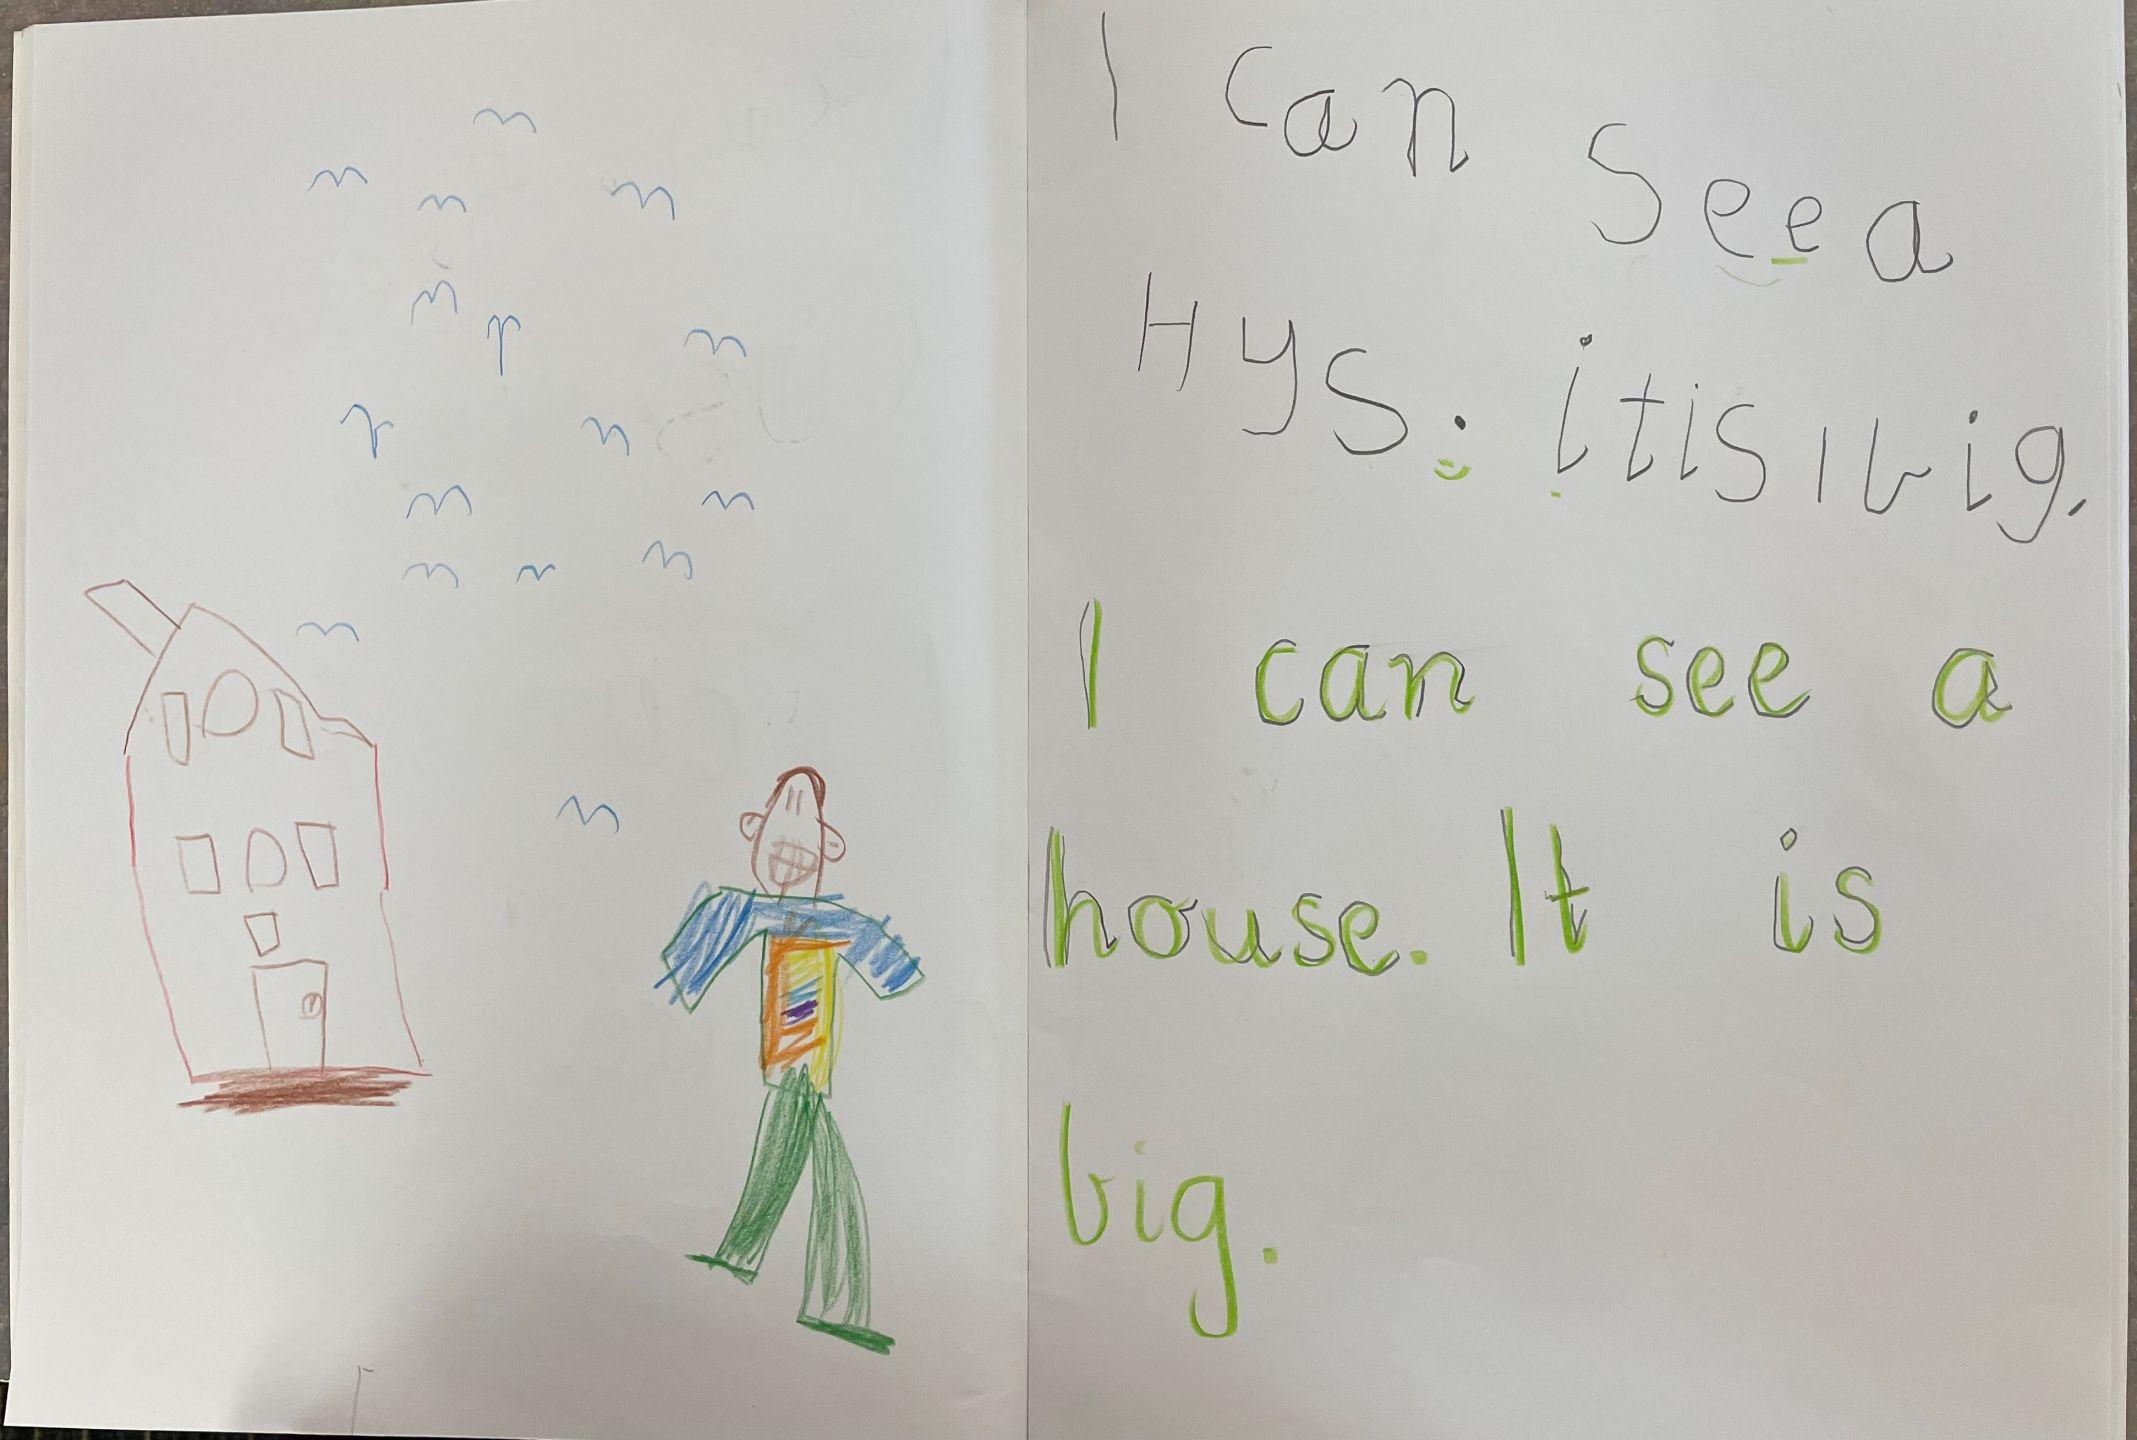 I can see a
Hys. itis ı big.
I can see a
house. It is
big.